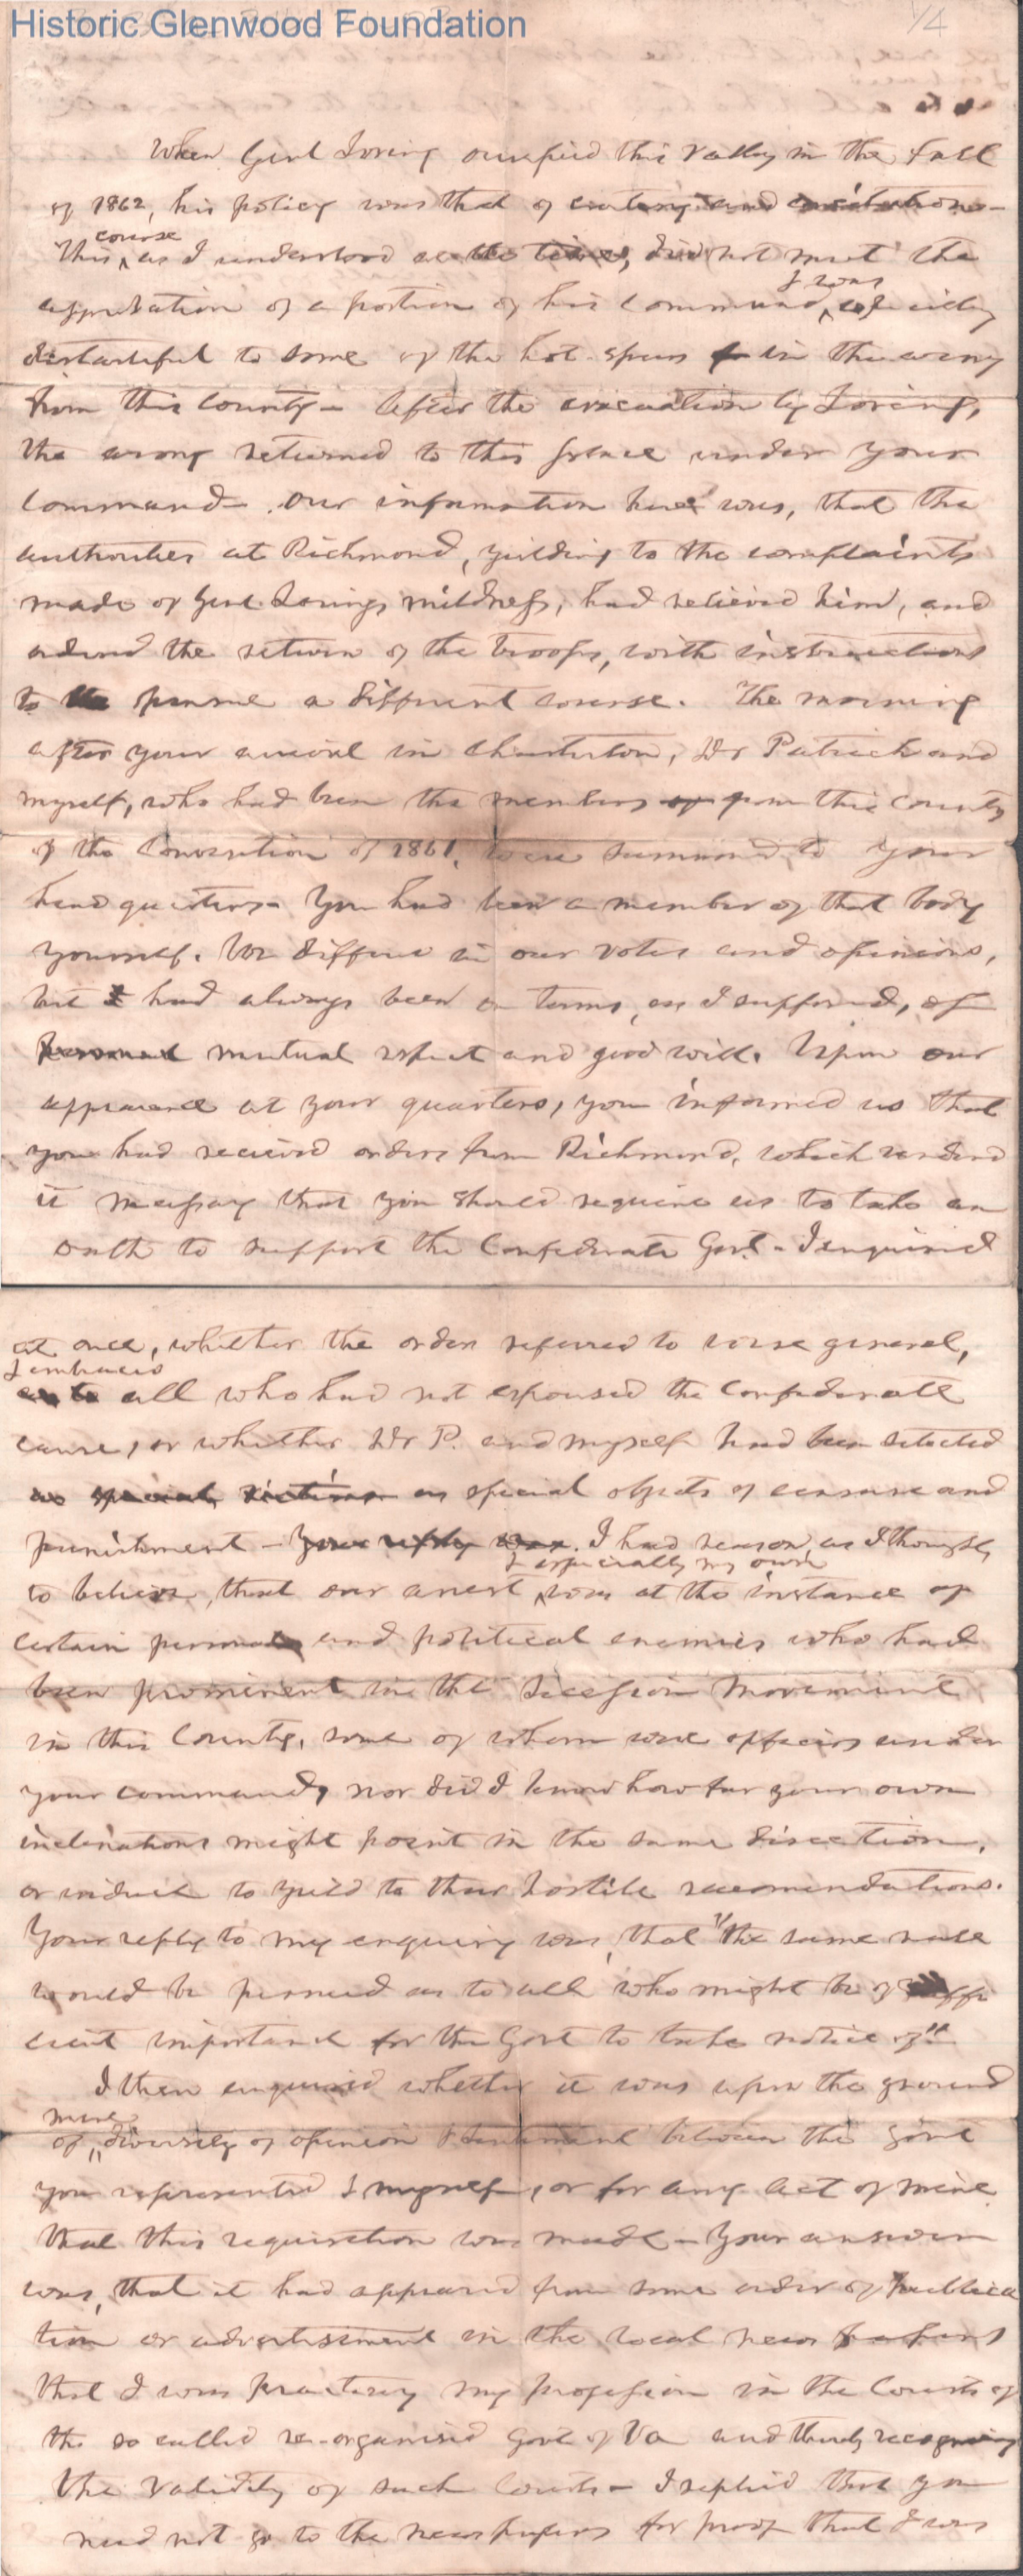 Historic Glenwood Foundation
1/4
When Genl Loring occupied this Valley in the fall
of 1862, his policy was that of
course
This, as I understood at the time, did not meet the
& was
approbation of a portion of his command, especially
distasteful to some of the hot-spurs in the army
from this County - After the evacuation by Loring,
the army returned to this place under your
command - Our information here was, that the
authorities at Richmond, yielding to the complaints
made of Genl Lorings mildness, had relieved him, and
ordered the return of the troops, with instructions
to pursue a different course. The morning
after your arrival in Charleston, Dr Patrick and
myself, who had been the members from this County
of the Convention of 1861, were summoned to your
head quarters - You had been a member of that body
yourself. We differed in our votes and opinions,
but had always been on terms, as I supposed, of
personal mutual respect and good will. Upon our
appearance at your quarters, you informed us that
you had received orders from Richmond, which rendered
it necessary that you should require us to take an
oath to support the Confederate Govt - I enquired
at once, whether the orders referred to were general,
& embraced
all who had not espoused the Confederate
cause, or whether Dr P. and myself had been selected
as special victims as special objects of censure and
punishment - Your reply was. I had reason, as I thought,
& especially my own
to believe, that our arrest, was at the instance of
certain personal and political enemies who had
been prominent in the Secession Movement
in this County, some of whom were officers under
your command, nor did I know how far your own
inclinations might point in the same direction,
or induce to yield to their hostile recomendations.
Your reply to my enquiry was, that "the same rule
would be pursued as to all who might be of suffi
cient importance for the Govt to take notice of"
I then enquired whether it was upon the ground
mere
of diversity of opinion & sentiment between the Govt
you represented & myself, or for any act of mine
that this requisition was made - Your answer
was, that it had appeared from some order of Publica
tion or advertisement in the local news papers
that I was practicing my profession in the Courts of
the so called re-organised Govt of Va and thereby recognising
the validity of such Courts - I replied that you
need not go to the newspapers for proof that I was